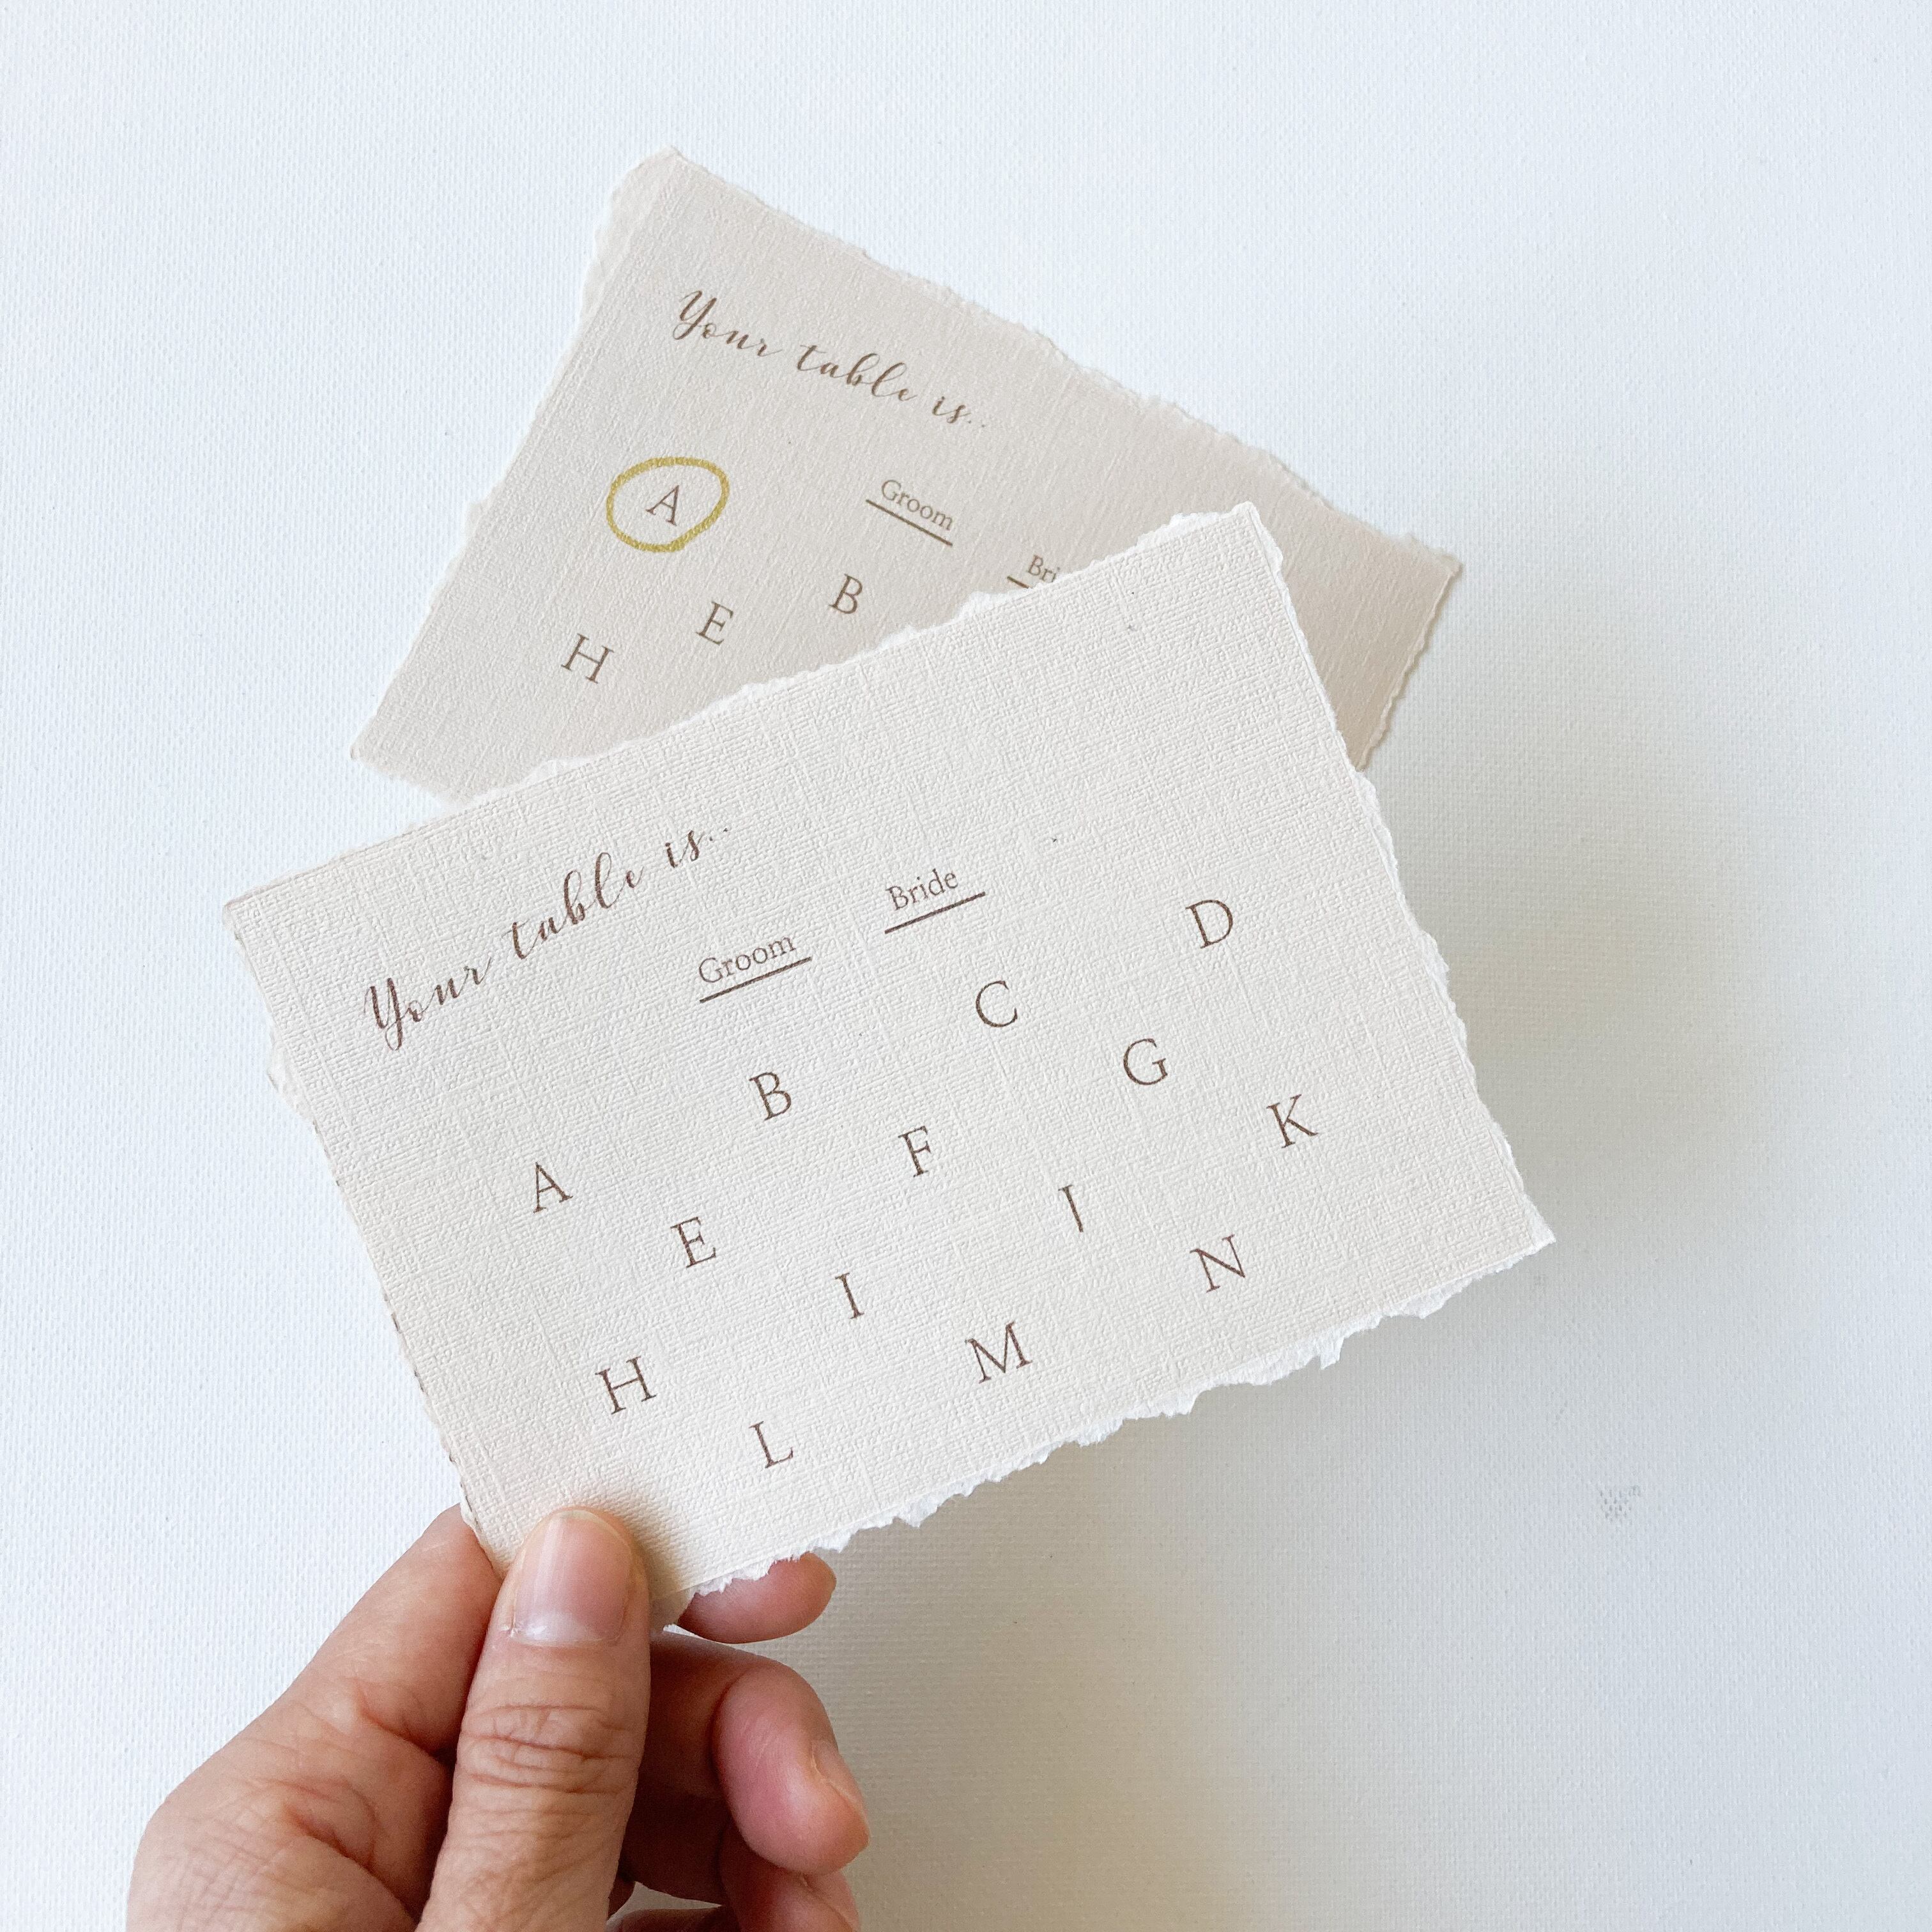 Your table is..
Groom
A B
E
H
Your table is..
Groom Bride
A B C D
E F G
H I J K
L M N